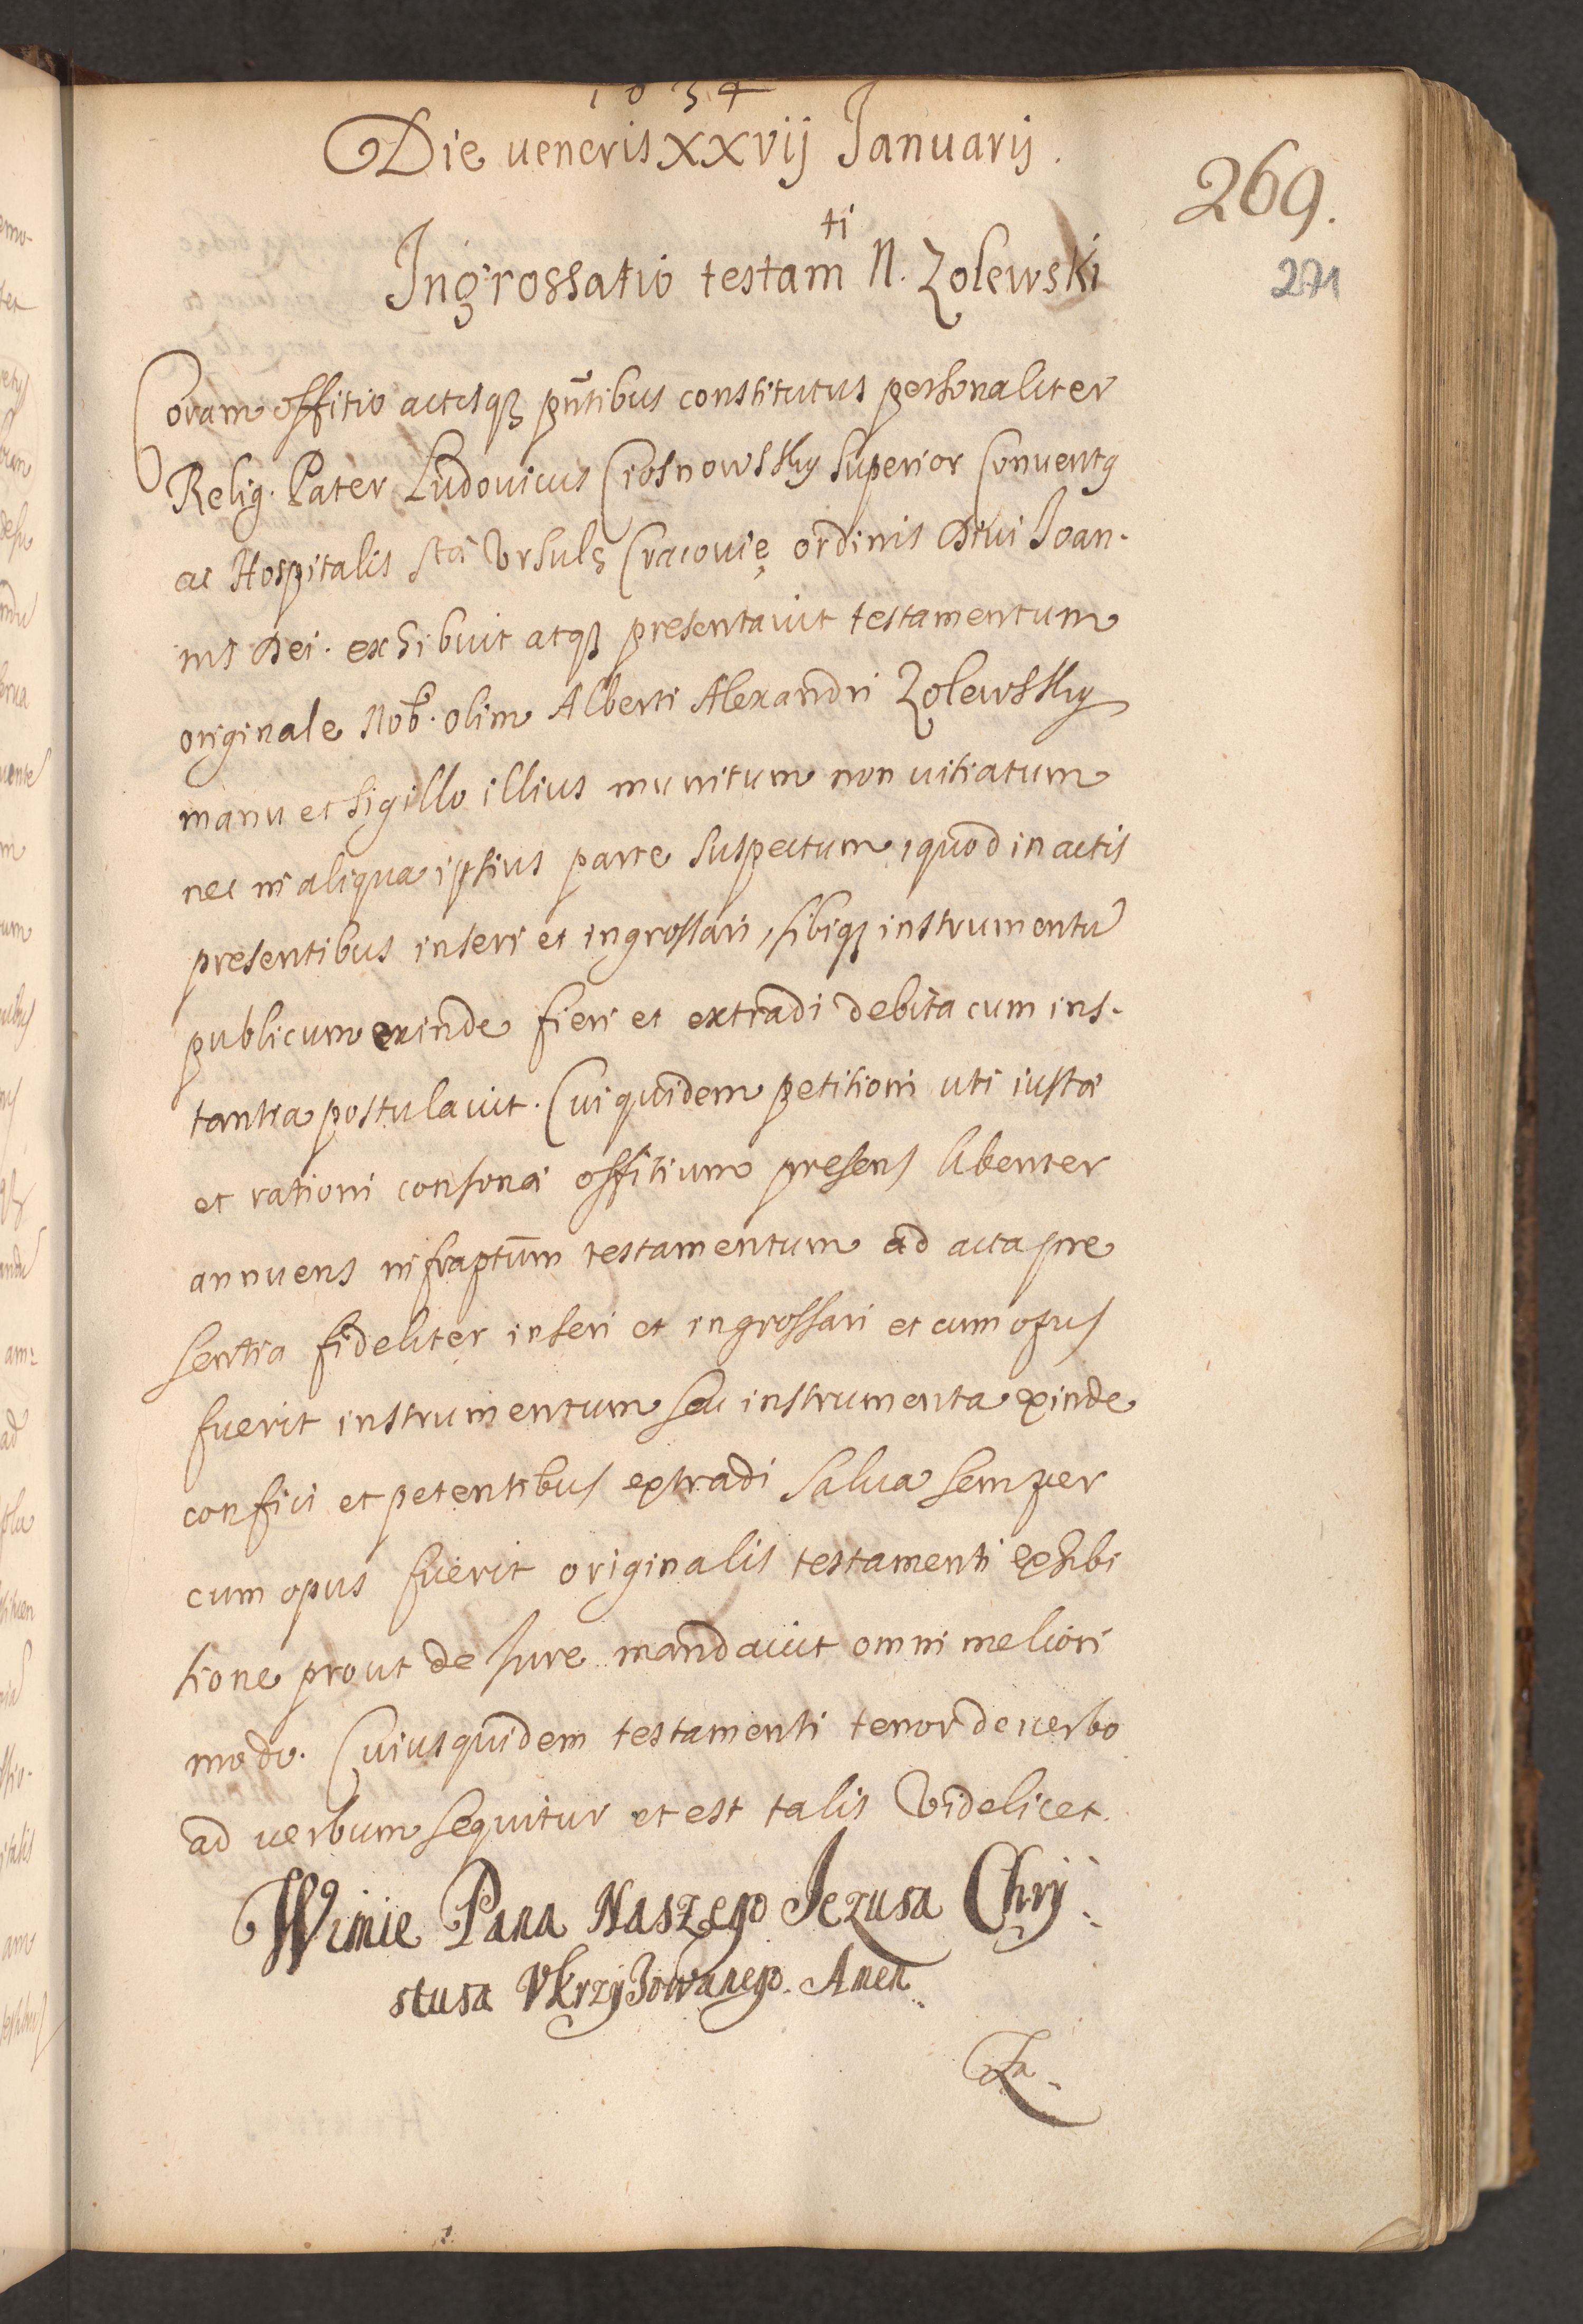 1634
Die ueneris XXvij Ianuarij.
269.
Ingrossatio testam ti N. Zolewski
271
Coram offitio actisqȝ pn̄tibus constitutus personaliter
Relig. Pater Ludouicus Ciosnowsky Superior Conuentꝯ
ac Hospitalis Stæ Vrsulę Cracouię ordinis Diui Ioan-
nis Dei. exhibuit atqȝ presentauit testamentum
originale Nob. olim Alberti Alexandri Zolewsky
manu et sigillo illius munitum non uitiatum
nec in aliqua ipsius parte suspectum, quod in actis
presentibus inseri et ingrossari, sibiqȝ instrumentū
publicum exinde fieri et extradi debita cum ins-
tantia postulauit. Cui quidem petitioni uti iustæ
et rationi consonæ offitium presens libenter
annuens infraptūm testamentum ad acta pre
sentia fideliter inseri et ingrossari et cum opus
fuerit instrumentum seu instrumenta exinde
confici et petentibus extradi salua semper
cum opus fuerit originalis testamenti exhibi
tione prout de Iure mandauit omni meliori
modo. Cuius quidem testamenti tenor de uerbo
ad uerbum sequitur et est talis Videlicet.
Wimie Pana Naszego Jezusa Chry-
stusa Vkrzyzowanego. Amen.
Za-